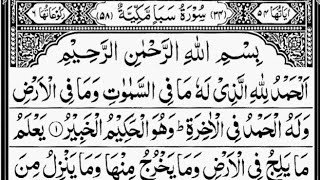 اٰیَاتُهَا ٥٤ (٣٤) سُوْرَةُ سَبَاٍ مَّكِّیَّةٌ (٥٨) رُكُوْعَاتُهَا ٦
بِسْمِ اللّٰهِ الرَّحْمٰنِ الرَّحِیْمِ
اَلْحَمْدُ لِلّٰهِ الَّذِیْ لَهٗ مَا فِی السَّمٰوٰتِ وَمَا فِی الْاَرْضِ
وَلَهُ الْحَمْدُ فِی الْاٰخِرَةِ ؕ وَهُوَ الْحَكِیْمُ الْخَبِیْرُ ۝١ یَعْلَمُ
مَا یَلِجُ فِی الْاَرْضِ وَمَا یَخْرُجُ مِنْهَا وَمَا یَنْزِلُ مِنَ